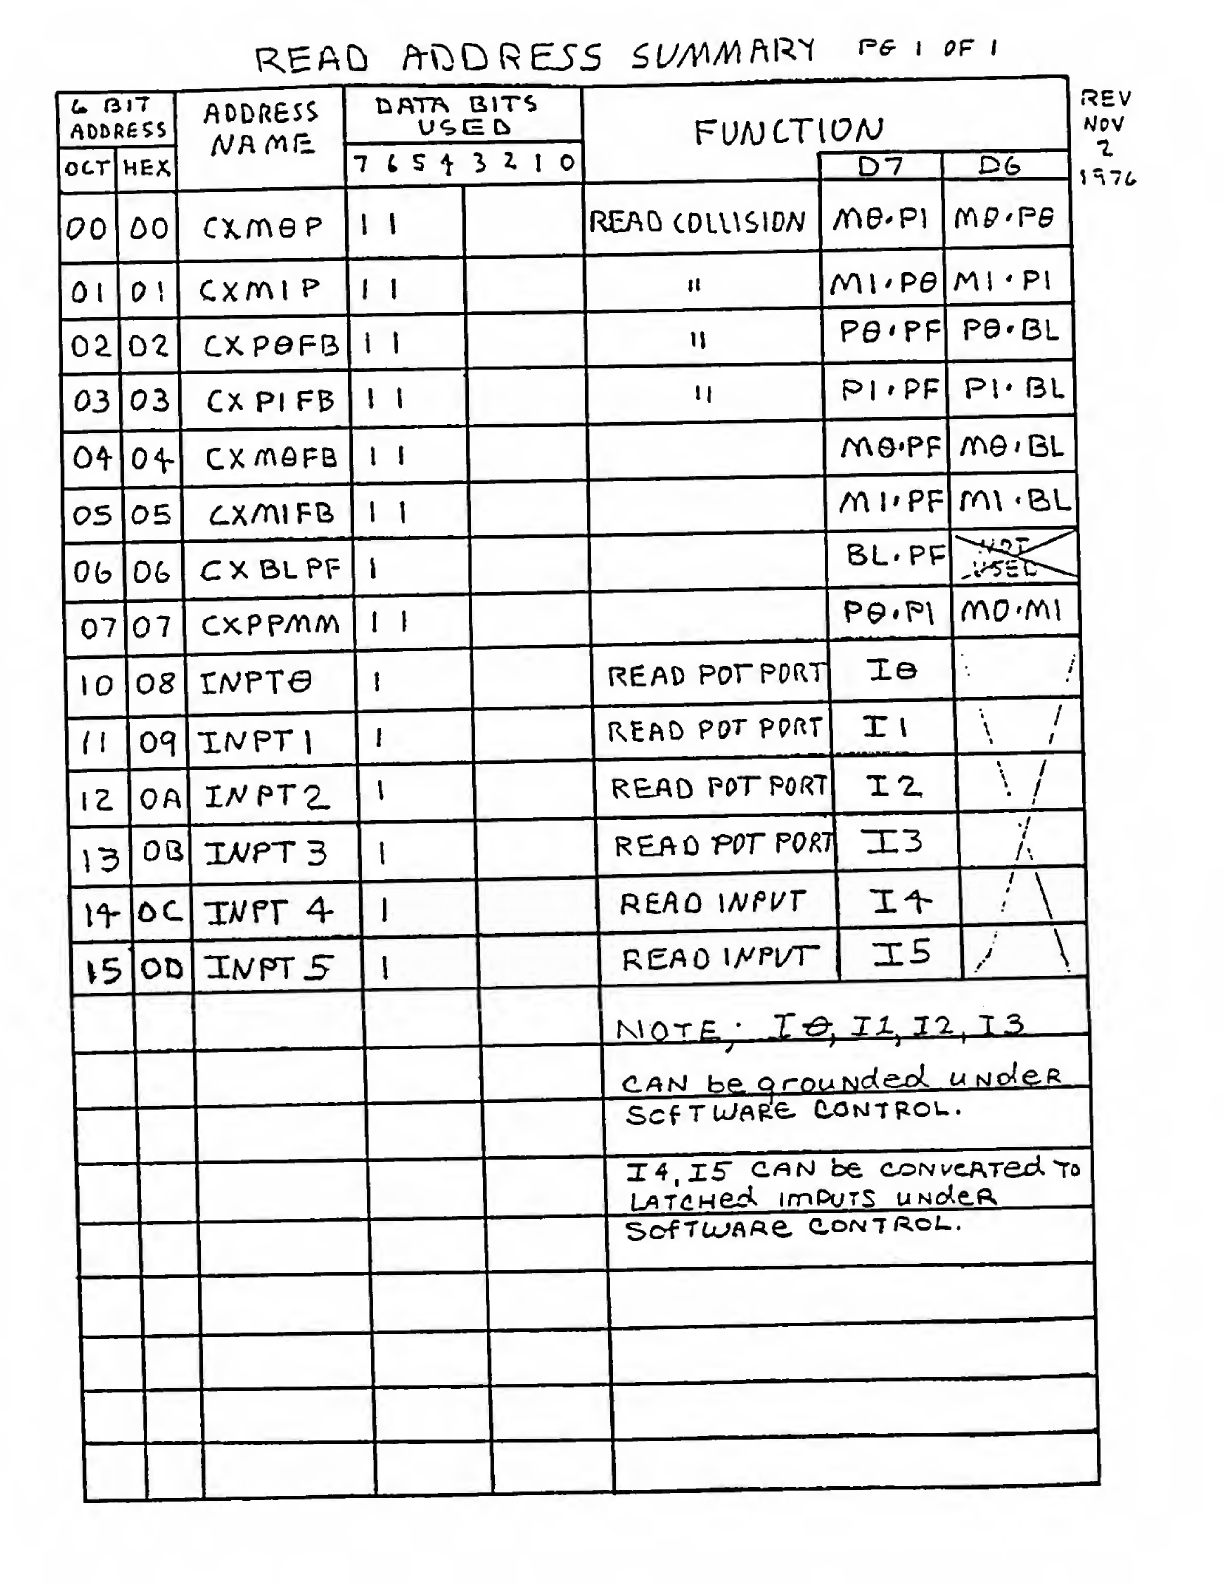 READ ADDRESS SUMMARY PG 1 OF 1
REV NOV 2 1976
6 BIT ADDRESS ADDRESS NAME DATA BITS USED FUNCTION
OCT HEX 7 6 5 4 3 2 1 0 D7 D6
00 00 CXMθP 1 1 READ COLLISION Mθ·P1 Mθ·Pθ
01 01 CXM1P 1 1 " M1·Pθ M1·P1
02 02 CXPθFB 1 1 " Pθ·PF Pθ·BL
03 03 CXP1FB 1 1 " P1·PF P1·BL
04 04 CXMθFB 1 1 Mθ·PF Mθ·BL
05 05 CXM1FB 1 1 M1·PF M1·BL
06 06 CXBLPF 1 BL·PF NOT USED
07 07 CXPPMM 1 1 Pθ·P1 MO·M1
10 08 INPTθ 1 READ POT PORT Iθ
11 09 INPT1 1 READ POT PORT I1
12 0A INPT2 1 READ POT PORT I2
13 0B INPT3 1 READ POT PORT I3
14 0C INPT 4 1 READ INPUT I4
15 0D INPT5 1 READ INPUT I5
NOTE; Iθ, I1, I2, I3
CAN be grouNded uNdeR
SofTWARe CONTROL.
I4, I5 CAN be CONveRTed To
LATCHed ImPUTS uNdeR
SofTWARe CONTROL.